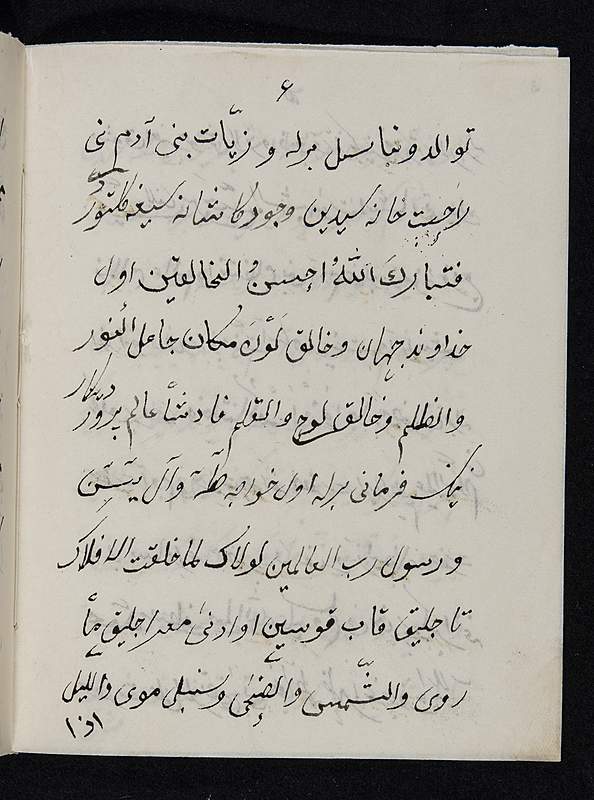 ۶
توالد و تناسل برله و زیّات بنی آدم نی
راحت خانه سیدین وجود کاشانه سیغه کلتوردی
فتبارکَ اللهُ احسنُ الخالقین اول
خداوند جهان و خالق کَون مکان جاعل النور
والظلم و خالق لوح والقلم فادشاً عالم پرور دیکار
نینک فرمانی برله اول خواجه طٰهٰ و آل یٰسٓن
و رسول رب العالمین لولاک لما خلقت الافلاک
تاجلیق قاب قوسین او ادنیٰ معراجلیق
روی والشّمس والضُحٰی و سنبل موی واللیل
اذا